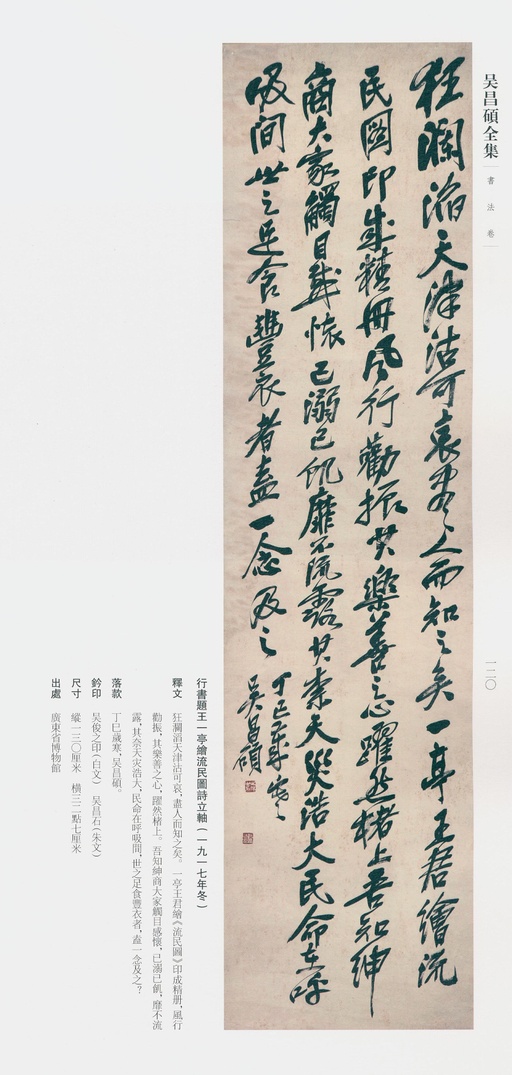 吴昌碩全集
書法卷
一二〇
狂瀾滔天津沽可哀盡人而知之矣一亭王君繪流
民圖印成精冊風行勸振其樂善之心躍然楮上吾知紳
商大家觸目感懷己溺己飢靡不流露其柰天災浩大民命在呼
吸間世之足食豐衣者盍一念及之
丁巳歲寒
吴昌碩
行書題王一亭繪流民圖詩立軸(一九一七年冬)
釋文 狂瀾滔天津沽可哀,盡人而知之矣。一亭王君繪《流民圖》印成精册,風行
勸振,其樂善之心,躍然楮上。吾知紳商大家觸目感懷,己溺己飢,靡不流
露,其奈天灾浩大,民命在呼吸間,世之足食豐衣者,盍一念及之?
落款 丁巳歲寒,吴昌碩。
鈐印 吴俊之印(白文) 吴昌石(朱文)
尺寸 縱一三〇厘米 横三二點七厘米
出處 廣東省博物館